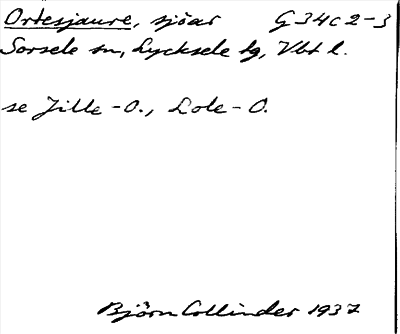 Ortesjaure, sjöar G34c2-3
Sorsele sn, Lycksele tg, Vbt l.
se Jille-O., Lole-O.
Björn Collinder 1937